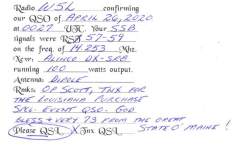 Radio W5L confirming
our QSO of APRIL 26, 2020
at 0027 UTC. Your SSB
signals were RST 57-59
on the freq. of 14.253 Mhz.
Xcvr: ALINCO DX-SR8
running 100 watts output.
Antenna: DIPOLE
Rmks: OP SCOTT, TNX FOR
THE LOUISIANA PURCHASE
SPCL EVENT QSO. GOD
BLESS & VERY 73 FROM THE GREAT
Please QSL X Tnx QSL STATE O' MAINE!